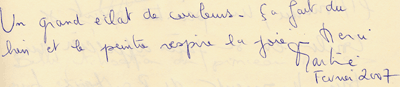 Un grand éclat de couleurs. Ça fait du
bien et le peintre respire la joie. Merci
Martine
Fevrier 2007